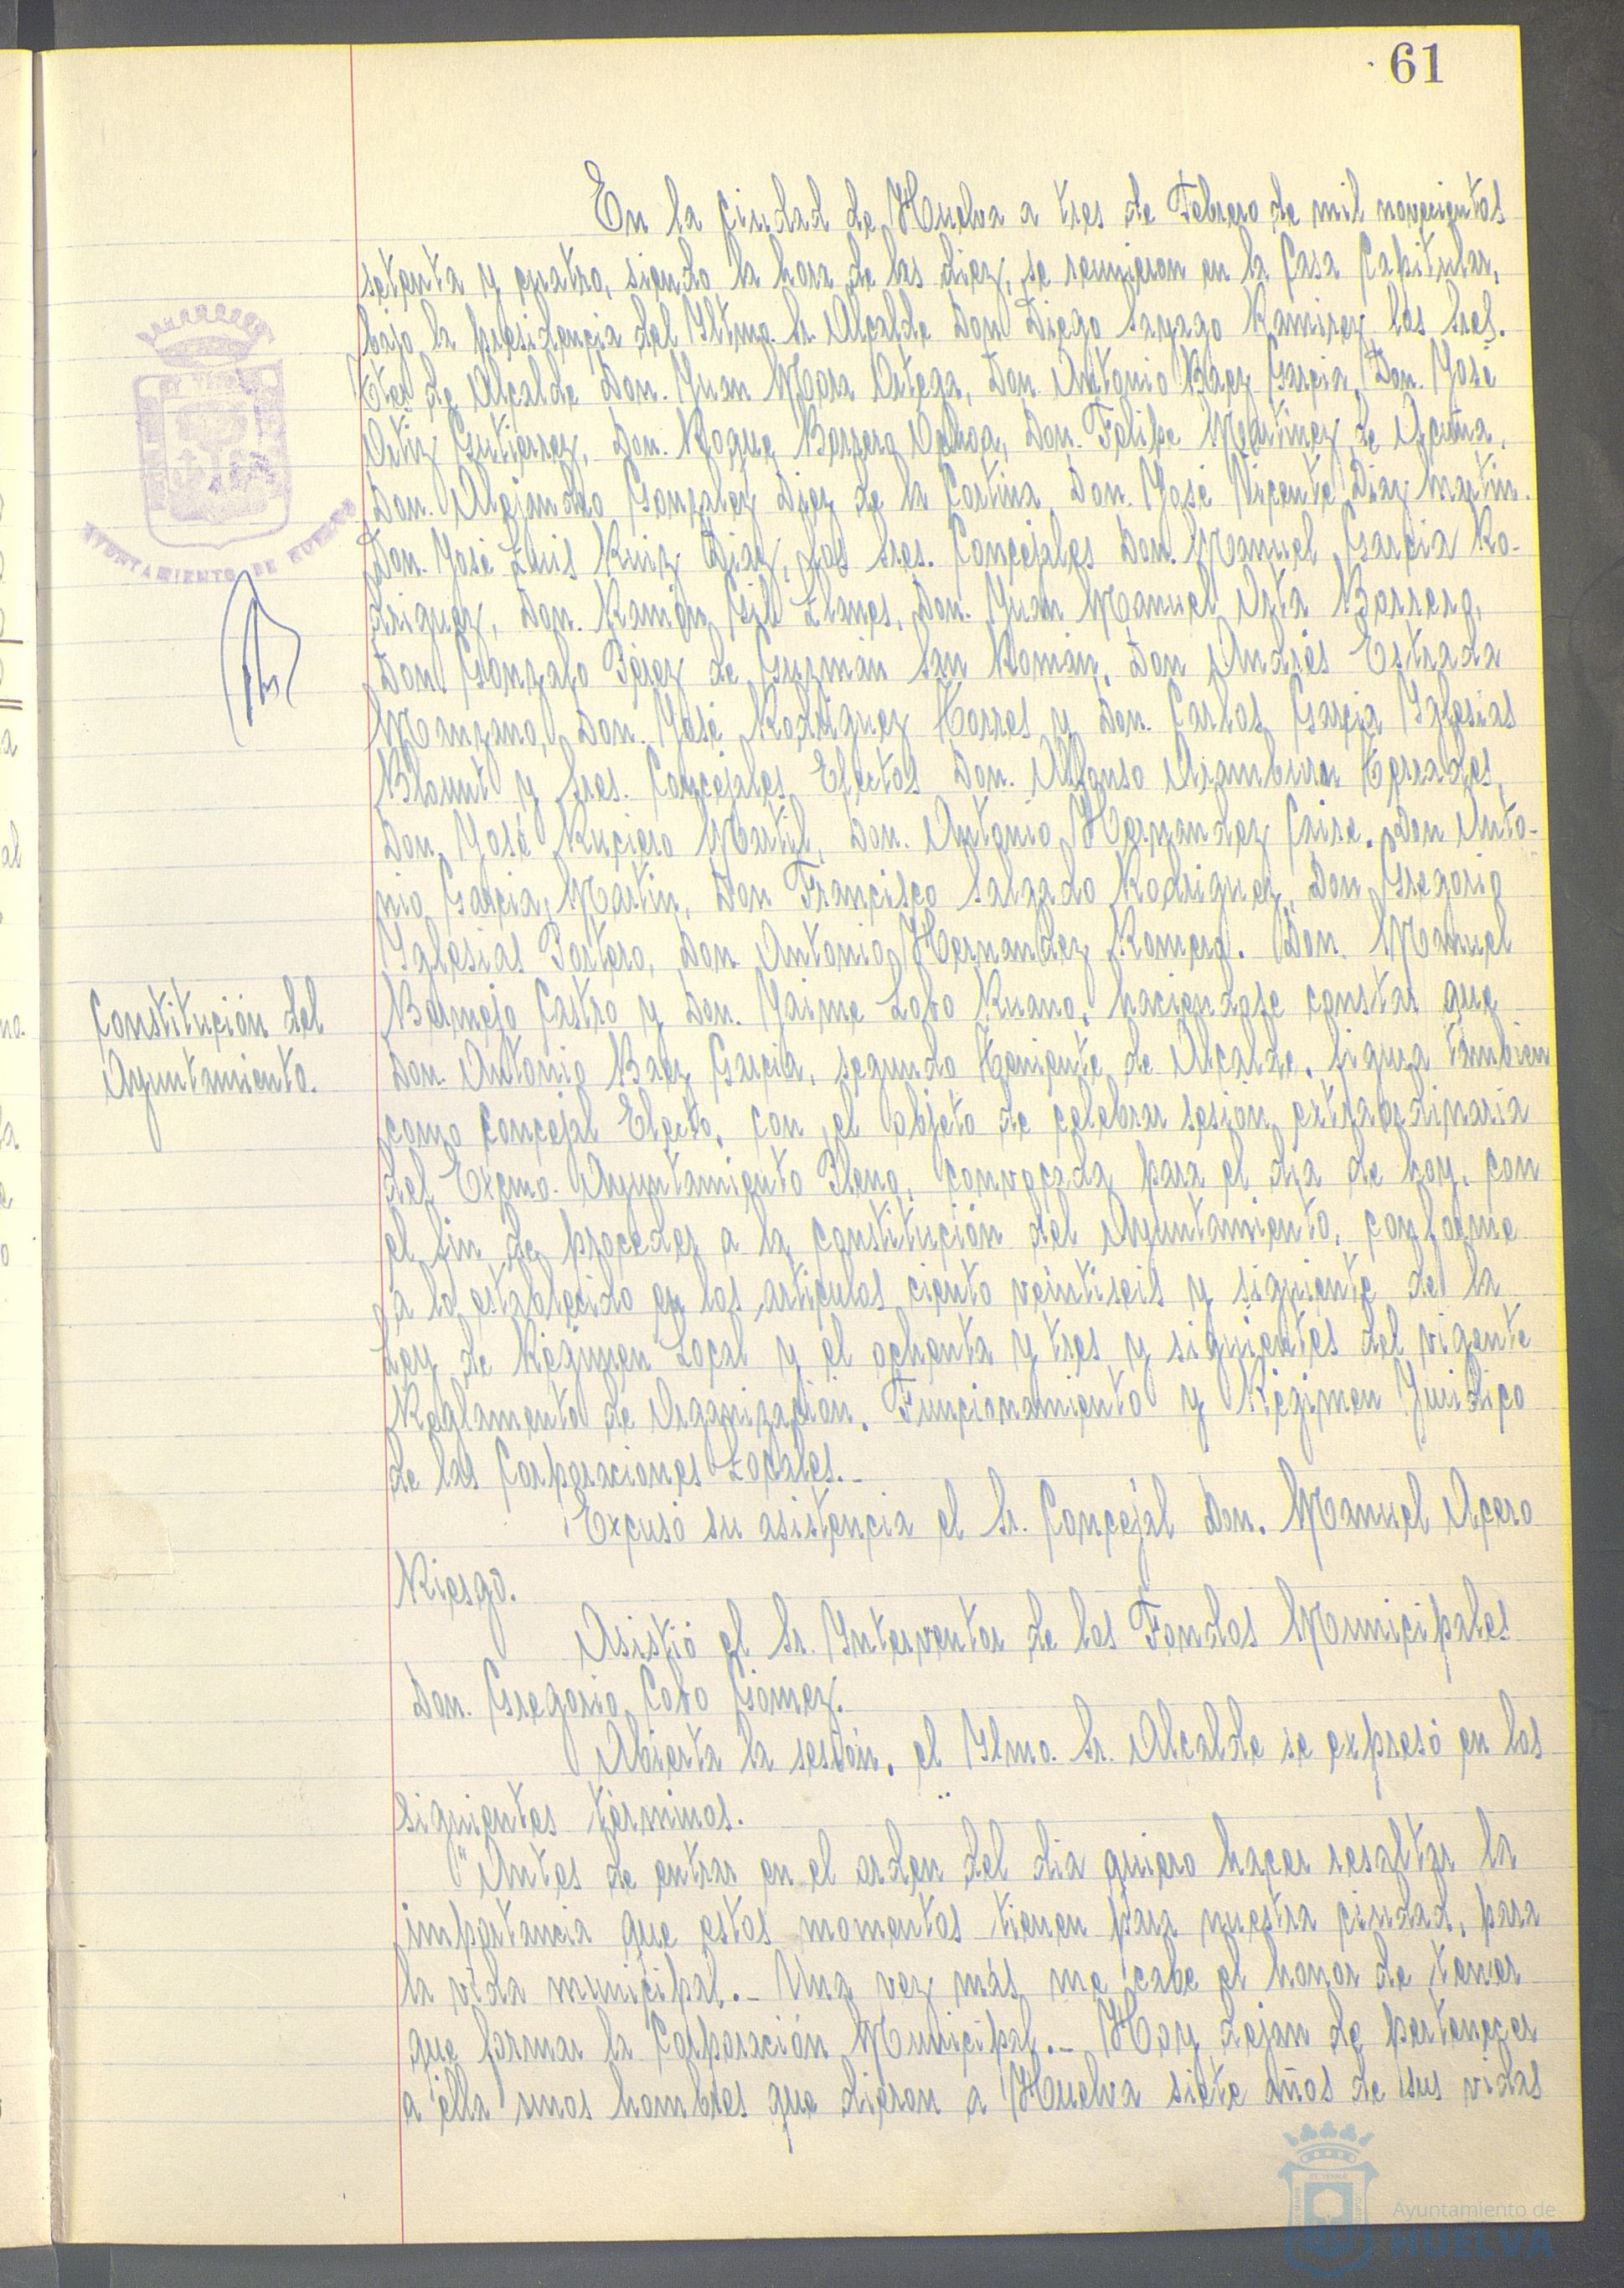 61
En la ciudad de Huelva a tres de Febrero de mil novecientos
setenta y cuatro, siendo la hora de las diez, se reunieron en la Casa Capitular,
bajo la presidencia del Iltmo. Sr. Alcalde Don Diego Sayago Ramirez los Sres.
Ttes de Alcalde Don. Juan Mora Ortega, Don. Antonio Baez Garcia, Don. José
Ortiz Gutierrez, Don. Roque Borrero Ochoa, Don. Felipe Martinez de Acuña,
Don. Alejandro Gonzalez Diez de la Cortina, Don. José Vicente Diaz Martin.
Don. José Luis Ruiz Diaz, los Sres. Concejales Don. Manuel Garcia Ro-
driguez, Don. Ramón Gil Llanes, Don. Juan Manuel Orta Borrero,
Don Gonzalo Pérez de Guzmán San Román, Don Andrés Estrada
Manzano, Don. José Rodriguez Torres y Don. Carlos Garcia Iglesias
Blount y Sres. Concejales Electos Don. Alfonso Aramburu Terrades,
Don José Ruciero Martil, Don. Antonio Hernandez Caire. Don Anto-
nio Garcia Martin, Don Francisco Salgado Rodriguez, Don Gregorio
Iglesias Portero, Don Antonio Hernandez Romero. Don. Manuel
Bermejo Castro y Don. Jaime Lobo Ruano, haciendose constar que
Don. Antonio Baez Garcia, segundo Teniente de Alcalde, figura tambien
como Concejal Electo, con el objeto de celebrar sesión extraordinaria
del Excmo. Ayuntamiento Pleno, convocada para el dia de hoy, con
el fin de proceder a la constitución del Ayuntamiento, conforme
a lo establecido en los articulos ciento veintiseis y siguiente de la
Ley de Régimen Local y el ochenta y tres y siguientes del vigente
Reglamento de Organización, Funcionamiento y Régimen Juridico
de las Corporaciones Locales.-
Excusó su asistencia el Sr. Concejal Don. Manuel Acero
Riesgo.
Asistió el Sr. Interventor de los Fondos Municipales
Don. Gregorio Cobo Gómez.
Abierta la sesión, el Ilmo. Sr. Alcalde se expresó en los
siguientes términos.
"Antes de entrar en el orden del dia quiero hacer resaltar la
importancia que estos momentos tienen para nuestra ciudad, para
la vida municipal.- Una vez más me cabe el honor de tener
que formar la Corporación Municipal.- Hoy dejan de pertenecer
a élla unos hombres que dieron a Huelva siete años de sus vidas
AYUNTAMIENTO DE HUELVA
Constitución del
Ayuntamiento.
Ayuntamiento de
HUELVA